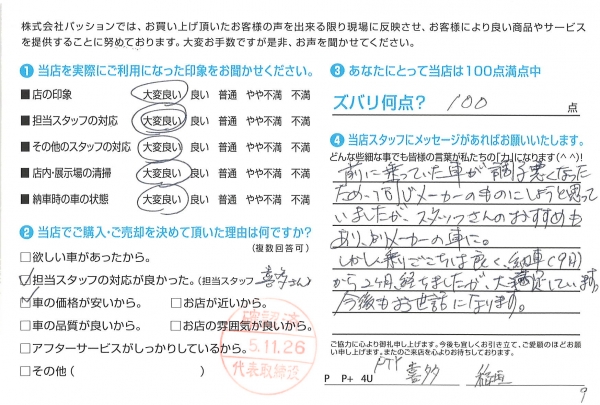 株式会社パッションでは、お買い上げ頂いたお客様の声を出来る限り現場に反映させ、お客様により良い商品やサービス
を提供することに努めております。大変お手数ですが是非、お声を聞かせてください。
1 当店を実際にご利用になった印象をお聞かせください。
■店の印象 大変良い 良い 普通 やや不満 不満
■担当スタッフの対応 大変良い 良い 普通 やや不満 不満
■その他のスタッフの対応 大変良い 良い 普通 やや不満 不満
■店内・展示場の清掃 大変良い 良い 普通 やや不満 不満
■納車時の車の状態 大変良い 良い 普通 やや不満 不満
2 当店でご購入・ご売却を決めて頂いた理由は何ですか?
(複数回答可)
□欲しい車があったから。
□担当スタッフの対応が良かった。(担当スタッフ 喜多さん)
□車の価格が安いから。 □お店が近いから。
□車の品質が良いから。 □お店の雰囲気が良いから。
□アフターサービスがしっかりしているから。
□その他( )
確認済
5.11.26
代表取締役
3 あなたにとって当店は100点満点中
ズバリ何点? 100 点
4 当店スタッフにメッセージがあればお願いいたします。
どんな些細な事でも皆様の言葉が私たちの「力」になります(^^)!
前に乗っていた車が調子悪くなった
ため、同じメーカーのものにしようと思って
いましたが、スタッフさんのおすすめも
あり、メーカーの車に。
しかし乗りごこちは良く、納車(9月)
から2ヶ月経ちましたが、大満足しています。
今後もお世話になります。
ご協力に心より御礼申し上げます。今後も宜しくお引き立て、ご愛顧のほどお願
い申し上げます。またのご来店を心よりお待ちしております。
P P+ 4U 喜多 稲垣
9